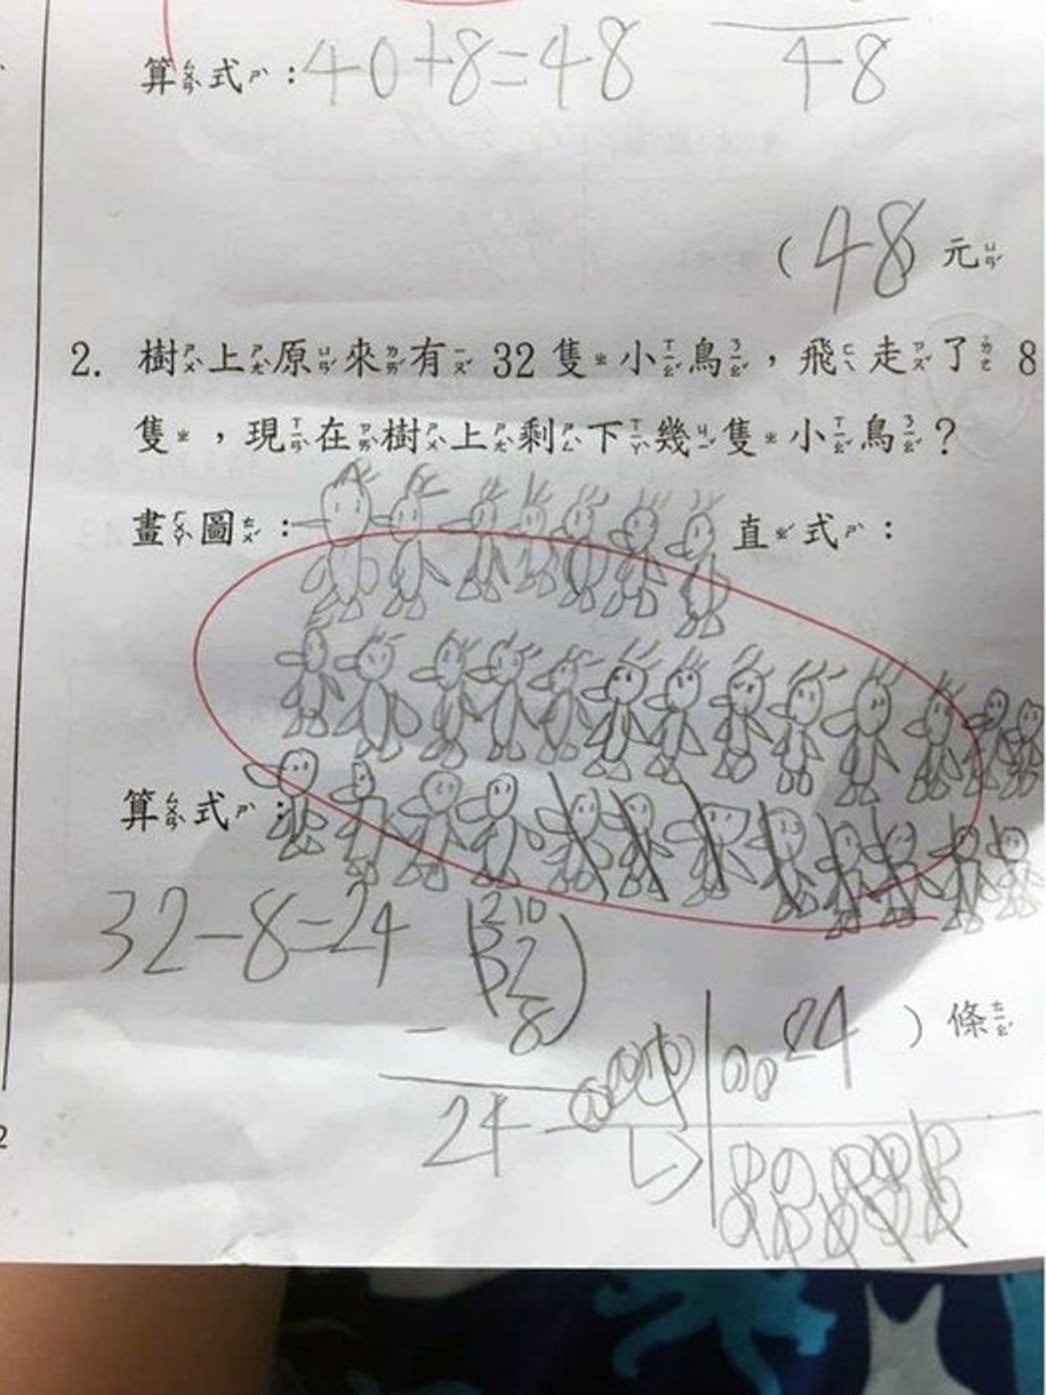 算式：40+8=48
48
(48) 元
2. 樹上原來有 32 隻小鳥，飛走了 8
隻，現在樹上剩下幾隻小鳥？
畫圖：
直式：
算式：
32-8=24
2 10
32
- 8
24
24 ) 條
2